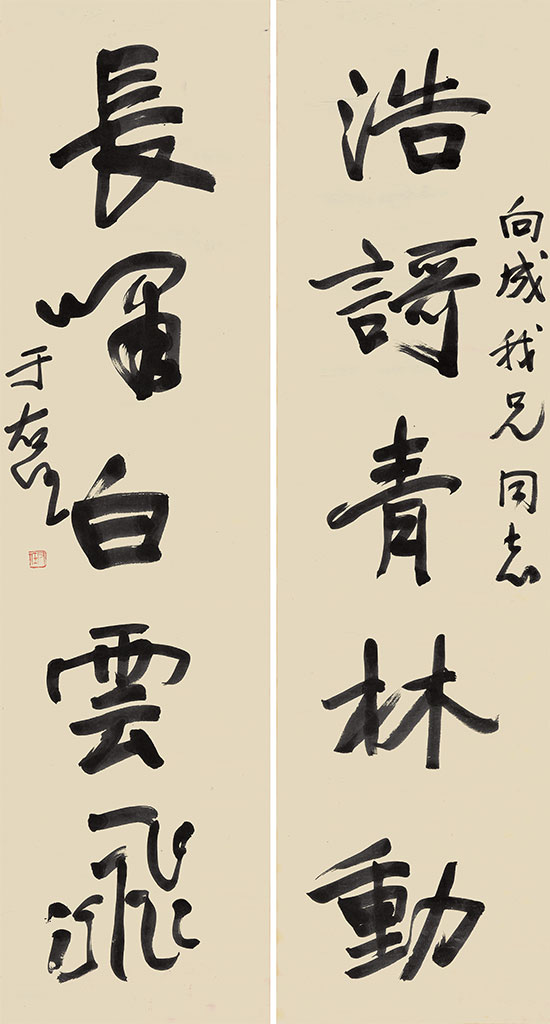 向成我兄同志
浩謌青林動
長嘯白雲飛
于右任